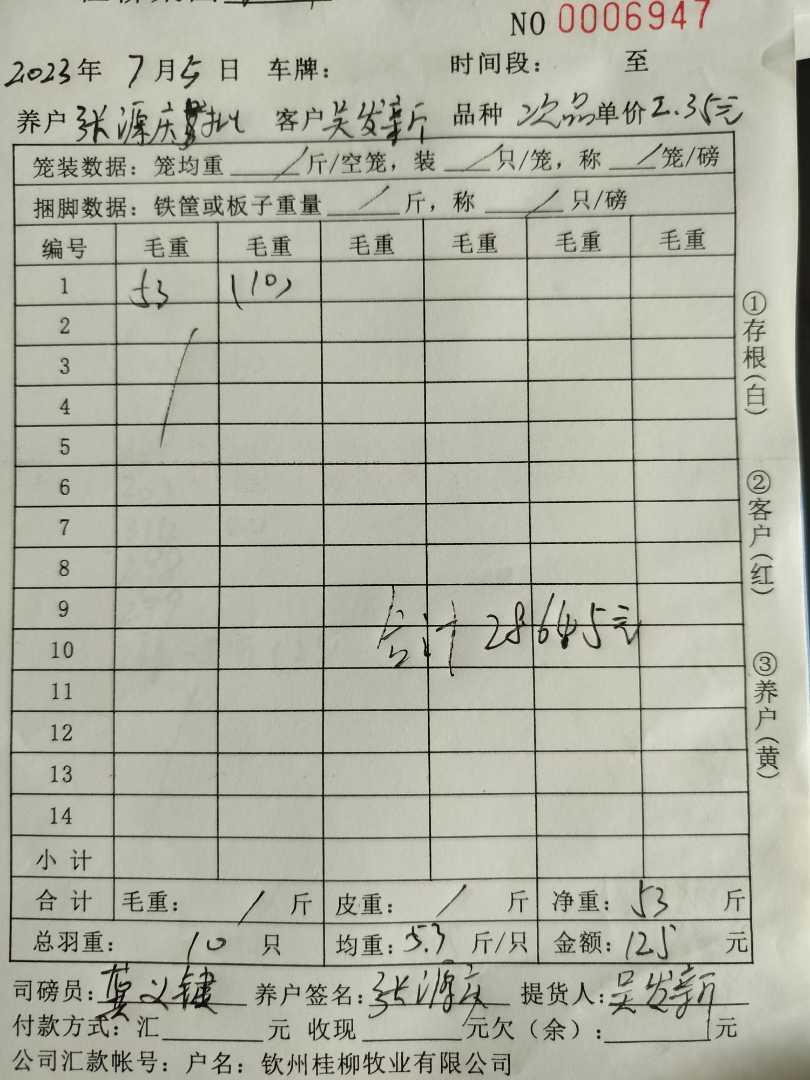 NO 0006947
2023年 7月5日 车牌: 时间段: 至
养户 张源庆 批 客户 吴发新 品种 次品 单价 2.35元
笼装数据: 笼均重 / 斤/空笼, 装 / 只/笼, 称 / 笼/磅
捆脚数据: 铁筐或板子重量 / 斤, 称 / 只/磅
编号 毛重 毛重 毛重 毛重 毛重 毛重
1 53 (10)
2
3
4
5
6
7
8
9
合计 28645元
10
11
12
13
14
小计
合计 毛重: / 斤 皮重: / 斤 净重: 53 斤
总羽重: 10 只 均重: 5.3 斤/只 金额: 125 元
司磅员: 莫义键 养户签名: 张源庆 提货人: 吴发新
付款方式: 汇 元 收现 元欠(余): 元
公司汇款帐号: 户名: 钦州桂柳牧业有限公司
①存根(白)
②客户(红)
③养户(黄)